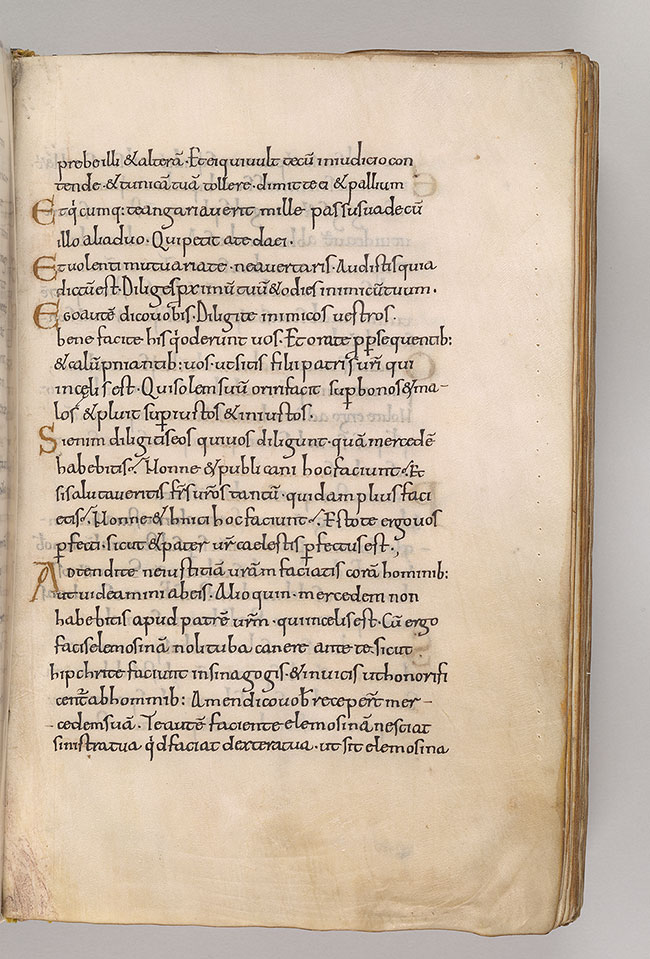 prebeilli & alterā. Et ei qui vult tecū in iudicio con
tende. & tunicā tuā tollere. dimitte ei & pallium
Et q̇ cumq: te angariaverit mille passus vade cū
illo alia duo. Qui petit a te da ei.
Et volenti mutuari a te. ne avertaris. Audistis quia
dictū est. Diliges pximū tuū & odies inimicū tuum.
Ego autē dico vobis. Diligite inimicos vestros.
bene facite his q̇ oderunt vos. Et orate p psequentib:
& calūpniantib: vos. ut sitis filii patris vr̄i qui
in cęlis est. Qui solem suū oriri facit sup bonos & ma-
los. & pluit sup iustos & iniustos.
Si enim diligitis eos qui vos diligunt. quā mercedē
habebitis. Nonne & publicani hoc faciunt. Et
si salutaveritis fr̄s vr̄os tantū. quid amplius faci
etis. Nonne & hnici hoc faciunt. Estote ergo vos
pfecti. sicut & pater vr̄ caelestis pfectus est.,
Aotendite ne iustitiā vr̄am faciatis corā hominib:
ut videamini ab eis. Alioquin. mercedem non
habebitis apud patrē vr̄m. qui in celis est. Cū ergo
facis elemosinā noli tuba canere ante te. sicut
hipchrite faciunt in sinagogis. & in vicis ut honorifi
cent̄ ab hominib: Amen dico vob̄ recepert̄ mer-
-cedem suā. Te autē faciente elemosinā nesciat
sinistra tua q̇d faciat dextera tua. ut sit elemosina